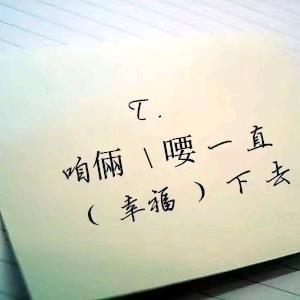 で.
咱倆 \ 喓一直
( 幸福 ) 下去